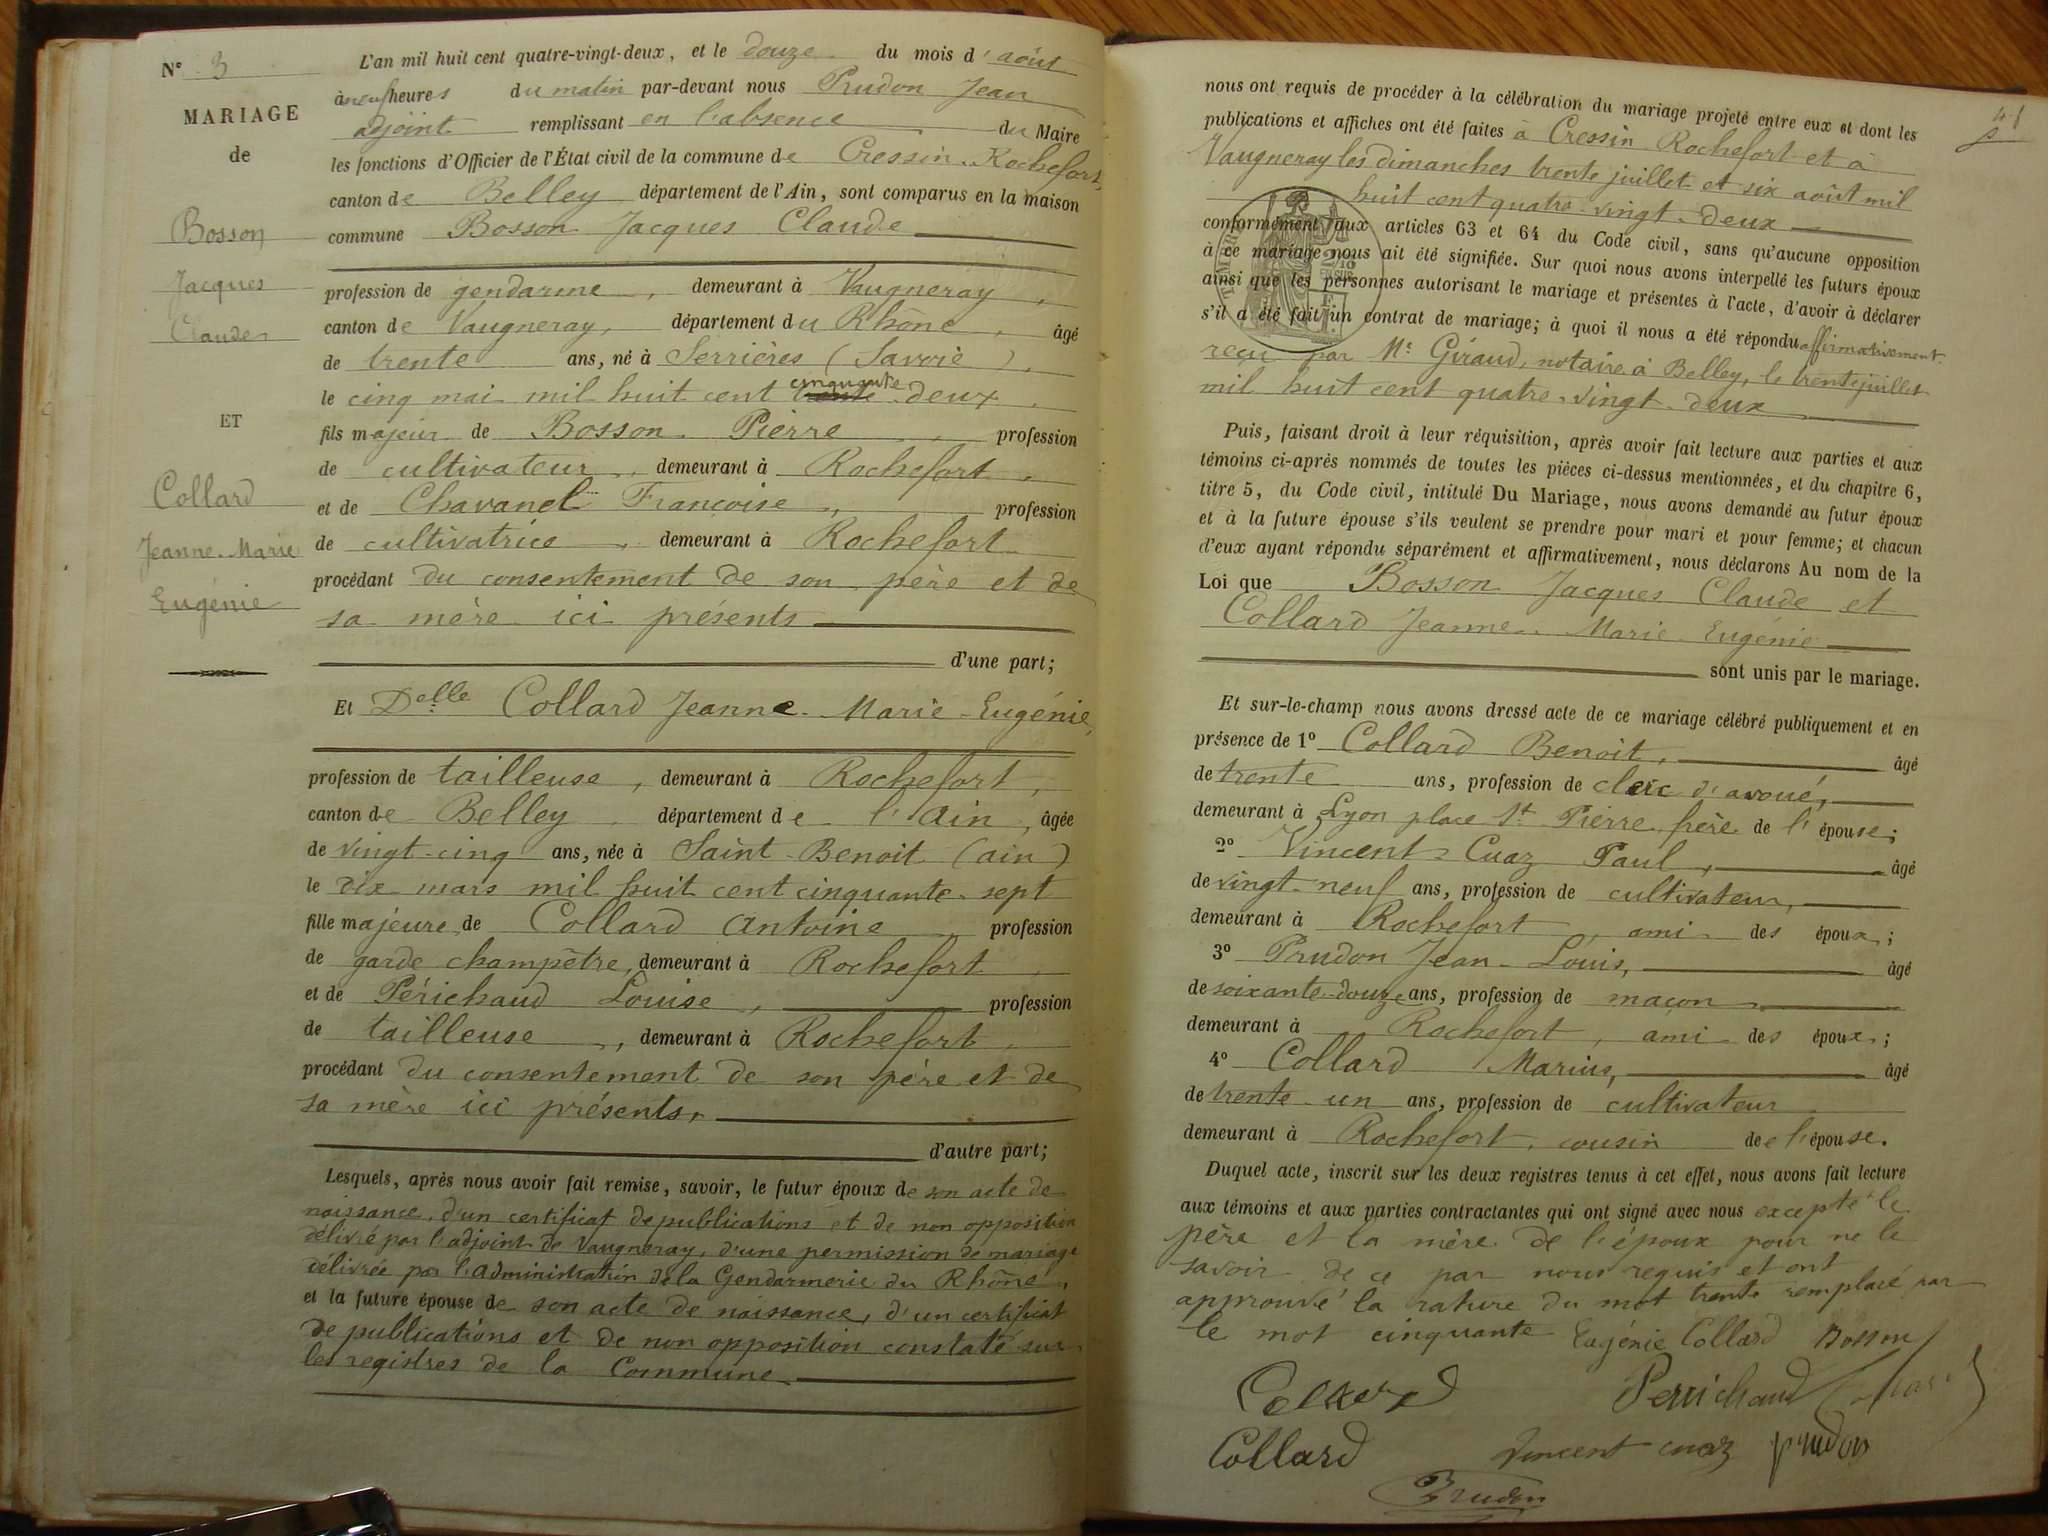 N° 3
MARIAGE
de
Bosson
Jacques
Claude
ET
Collard
Jeanne-Marie
Eugénie
L'an mil huit cent quatre-vingt-deux, et le douze du mois d'août
à neuf heures du matin par-devant nous Prudon Jean
adjoint remplissant en l'absence du Maire
les fonctions d'Officier de l'État civil de la commune de Cressin-Rochefort,
canton de Belley département de l'Ain, sont comparus en la maison
commune Bosson Jacques Claude
profession de gendarme, demeurant à Vaugneray,
canton de Vaugneray, département du Rhône, âgé
de trente ans, né à Serrières (Savoie),
le cinq mai mil huit cent trente cinquante-deux,
fils majeur de Bosson Pierre, profession
de cultivateur, demeurant à Rochefort,
et de Chavanel Françoise, profession
de cultivatrice, demeurant à Rochefort
procédant du consentement de son père et de
sa mère ici présents
d'une part;
Et Delle Collard Jeanne-Marie-Eugénie,
profession de tailleuse, demeurant à Rochefort,
canton de Belley, département de l'Ain, âgée
de vingt-cinq ans, née à Saint-Benoit (ain)
le dix mars mil huit cent cinquante-sept
fille majeure de Collard Antoine, profession
de garde champêtre, demeurant à Rochefort,
et de Périchaud Louise, profession
de tailleuse, demeurant à Rochefort,
procédant du consentement de son père et de
sa mère ici présents,
d'autre part;
Lesquels, après nous avoir fait remise, savoir, le futur époux de son acte de
naissance, d'un certificat de publications et de non opposition
délivré par l'adjoint de Vaugneray, d'une permission de mariage
délivrée par l'administration de la Gendarmerie du Rhône,
et la future épouse de son acte de naissance, d'un certificat
de publications et de non opposition constaté sur
les registres de la Commune
41
nous ont requis de procéder à la célébration du mariage projeté entre eux et dont les
publications et affiches ont été faites à Cressin Rochefort et à
Vaugneray les dimanches trente juillet et six août mil
huit cent quatre-vingt-deux
conformément aux articles 63 et 64 du Code civil, sans qu'aucune opposition
à ce mariage nous ait été signifiée. Sur quoi nous avons interpellé les futurs époux
ainsi que les personnes autorisant le mariage et présentes à l'acte, d'avoir à déclarer
s'il a été fait un contrat de mariage; à quoi il nous a été répondu affirmativement
reçu par Me Giraud, notaire à Belley, le trente juillet
mil huit cent quatre-vingt-deux
Puis, faisant droit à leur réquisition, après avoir fait lecture aux parties et aux
témoins ci-après nommés de toutes les pièces ci-dessus mentionnées, et du chapitre 6,
titre 5, du Code civil, intitulé Du Mariage, nous avons demandé au futur époux
et à la future épouse s'ils veulent se prendre pour mari et pour femme; et chacun
d'eux ayant répondu séparément et affirmativement, nous déclarons Au nom de la
Loi que Bosson Jacques Claude et
Collard Jeanne-Marie-Eugénie
sont unis par le mariage.
Et sur-le-champ nous avons dressé acte de ce mariage célébré publiquement et en
présence de 1° Collard Benoit, âgé
de trente ans, profession de clerc d'avoué,
demeurant à Lyon place St Pierre, frère de l'épouse;
2° Vincent-Cuaz Paul, âgé
de vingt-neuf ans, profession de cultivateur,
demeurant à Rochefort, ami des époux;
3° Prudon Jean-Louis, âgé
de soixante-douze ans, profession de maçon
demeurant à Rochefort, ami des époux;
4° Collard Marius, âgé
de trente-un ans, profession de cultivateur
demeurant à Rochefort, cousin de l'épouse.
Duquel acte, inscrit sur les deux registres tenus à cet effet, nous avons fait lecture
aux témoins et aux parties contractantes qui ont signé avec nous excepté le
père et la mère de l'époux pour ne le
savoir de ce par nous requis et ont
approuvé la rature du mot trente remplacé par
le mot cinquante Eugénie Collard Bosson
Collard Perrichaud Collard
Collard Vincent cuaz prudon
Prudon